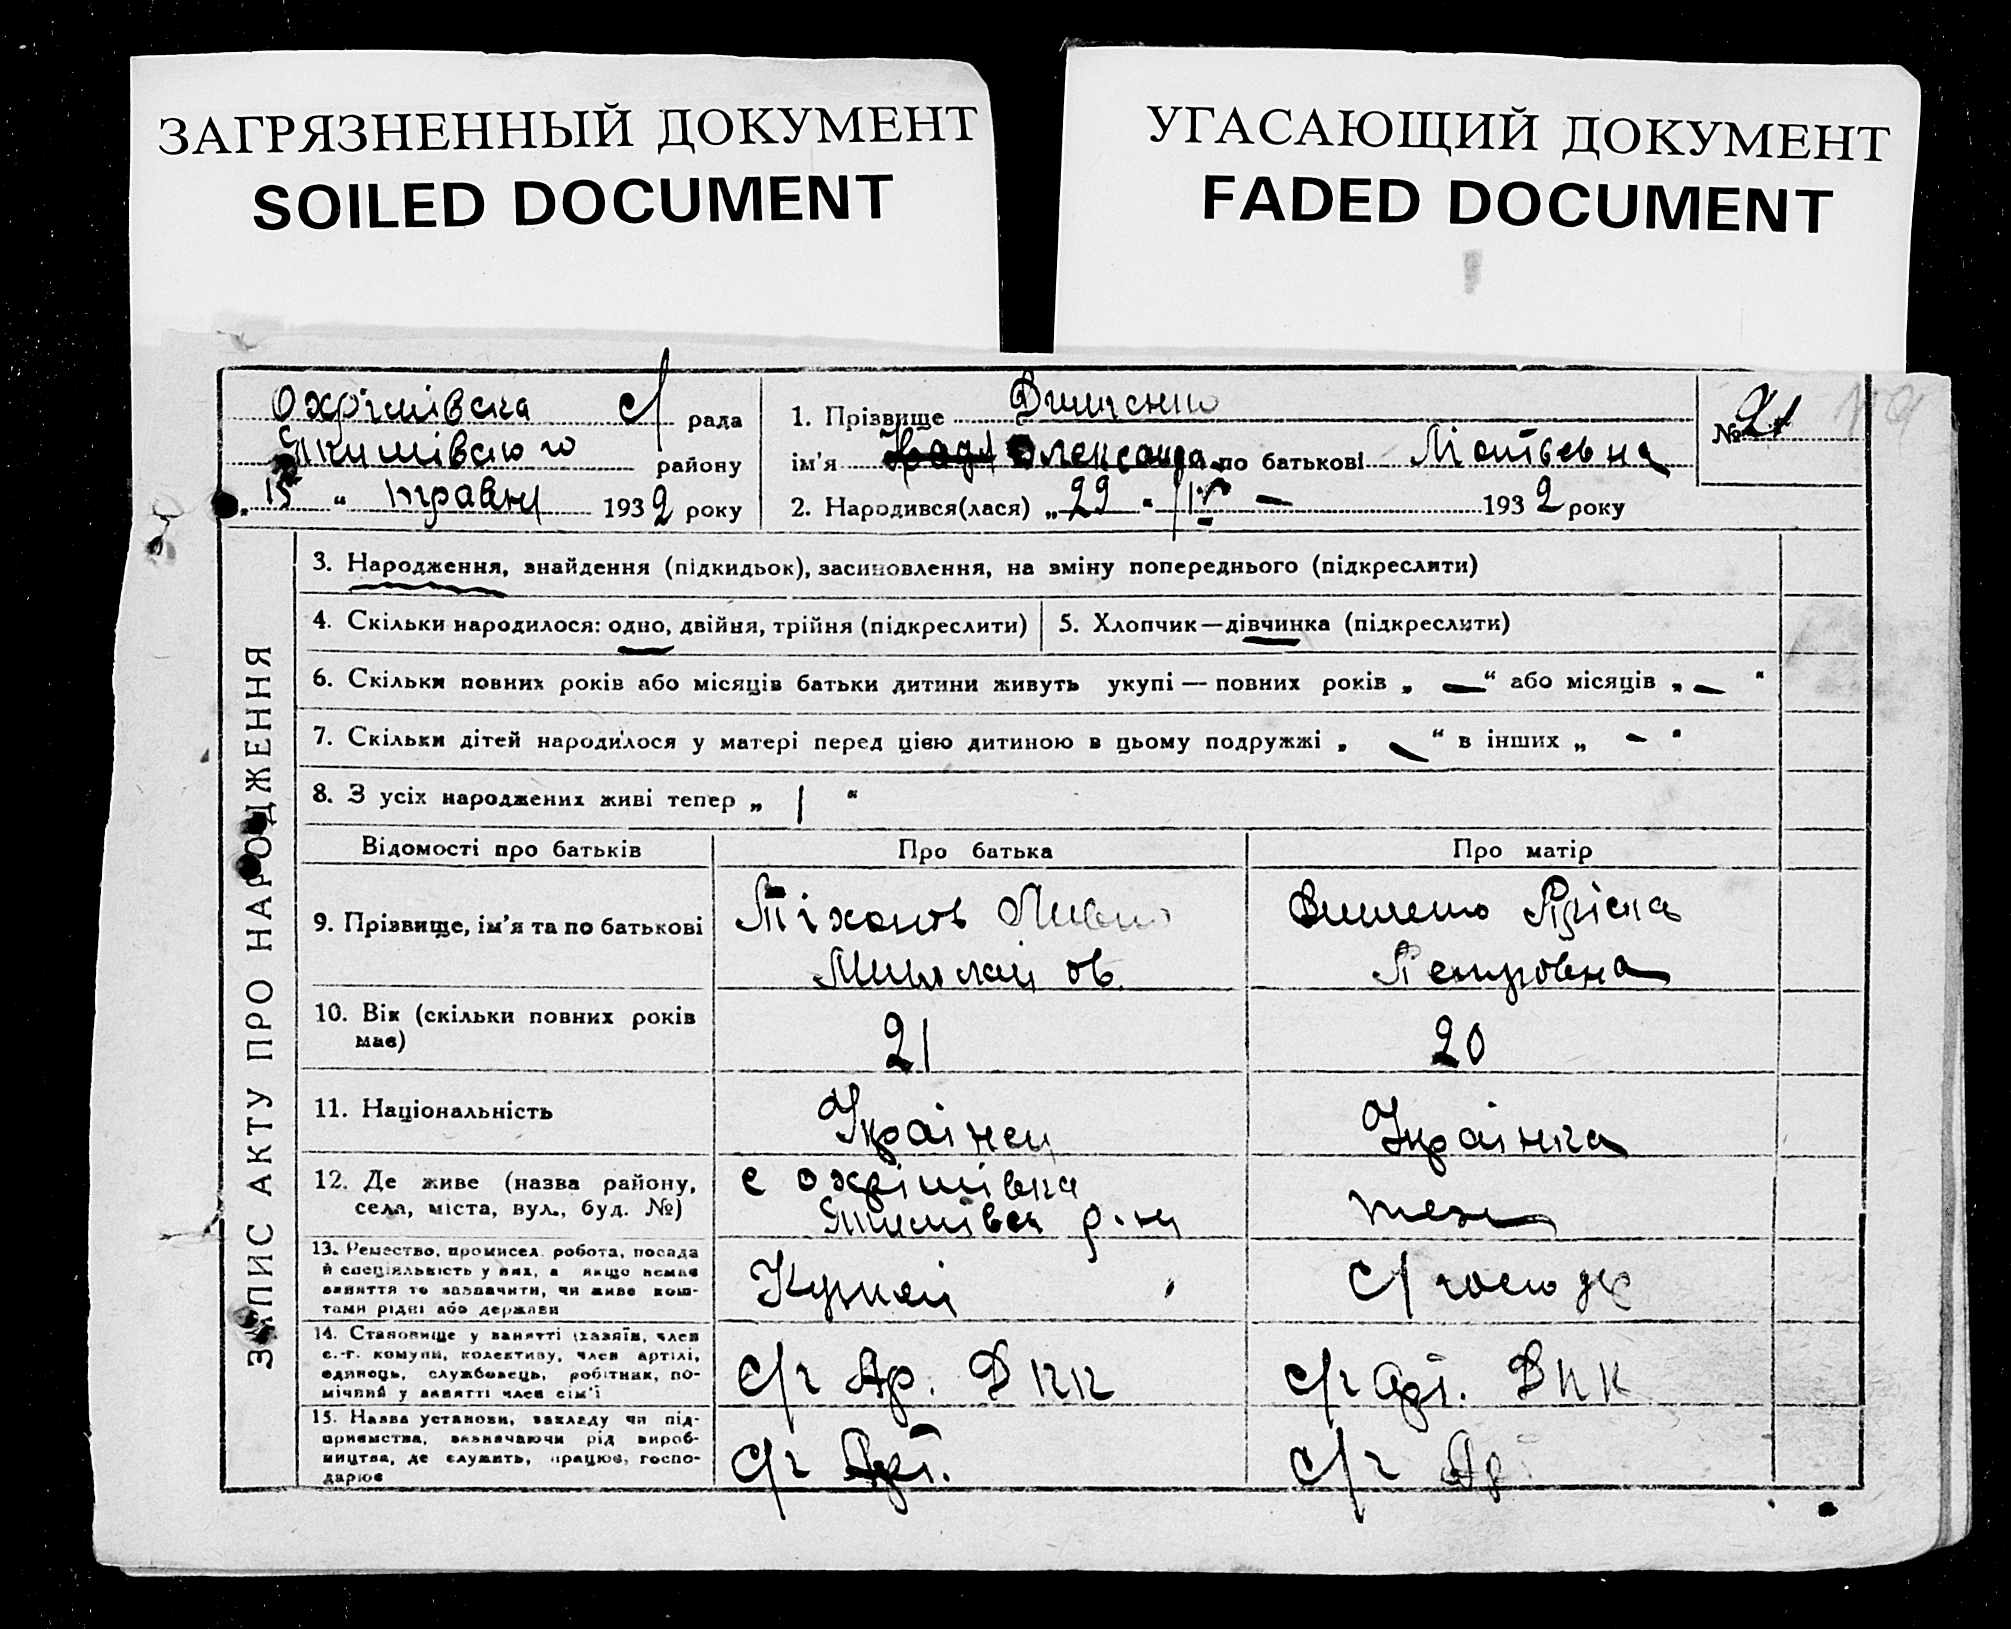 ЗАГРЯЗНЕННЫЙ ДОКУМЕНТ
SOILED DOCUMENT
УГАСАЮЩИЙ ДОКУМЕНТ
FADED DOCUMENT
Охрімівска с/ рада
Якимівського району
„ 15 “ травня 1932 року
1. Прізвище
ім'я Олександра по батькові
2. Народився(лася) „ 22 “ IV — 1932 року
№ 21
ЗАПИС АКТУ ПРО НАРОДЖЕННЯ
3. Народження, знайдення (підкидьок), засиновлення, на зміну попереднього (підкреслити)
4. Скільки народилося: одно, двійня, трійня (підкреслити)
5. Хлопчик—дівчинка (підкреслити)
6. Скільки повних років або місяців батьки дитини живуть укупі — повних років „ — “ або місяців „ — “
7. Скільки дітей народилося у матері перед цією дитиною в цьому подружжі „ — “ в інших „ — “
8. З усіх народжених живі тепер „ 1 “
Відомості про батьків
Про батька
Про матір
9. Прізвище, ім'я та по батькові
Петровна
10. Вік (скільки повних років
має)
21
20
11. Національність
Українец
Українка
12. Де живе (назва району,
села, міста, вул., буд. №)
с Охрімівка
Якимівск р-н
теж
13. Ремество, промисел, робота, посада
й спеціяльність у них, а якщо немає
заняття то зазначити, чи живе кош-
тами рідні або держави
с/госп
14. Становище у занятті (хазяїн, член
с.-г. комуни, колективу, член артілі,
одинець, службовець, робітник, по-
мічний у занятті член сім'ї
с/г Ар. ДКК
с/г арт. ДКК
15. Назва установи, закладу чи під-
приємства, зазначаючи рід вироб-
ництва, де служить, працює, госпо-
дарює
с/г Арт.
с/г Ар